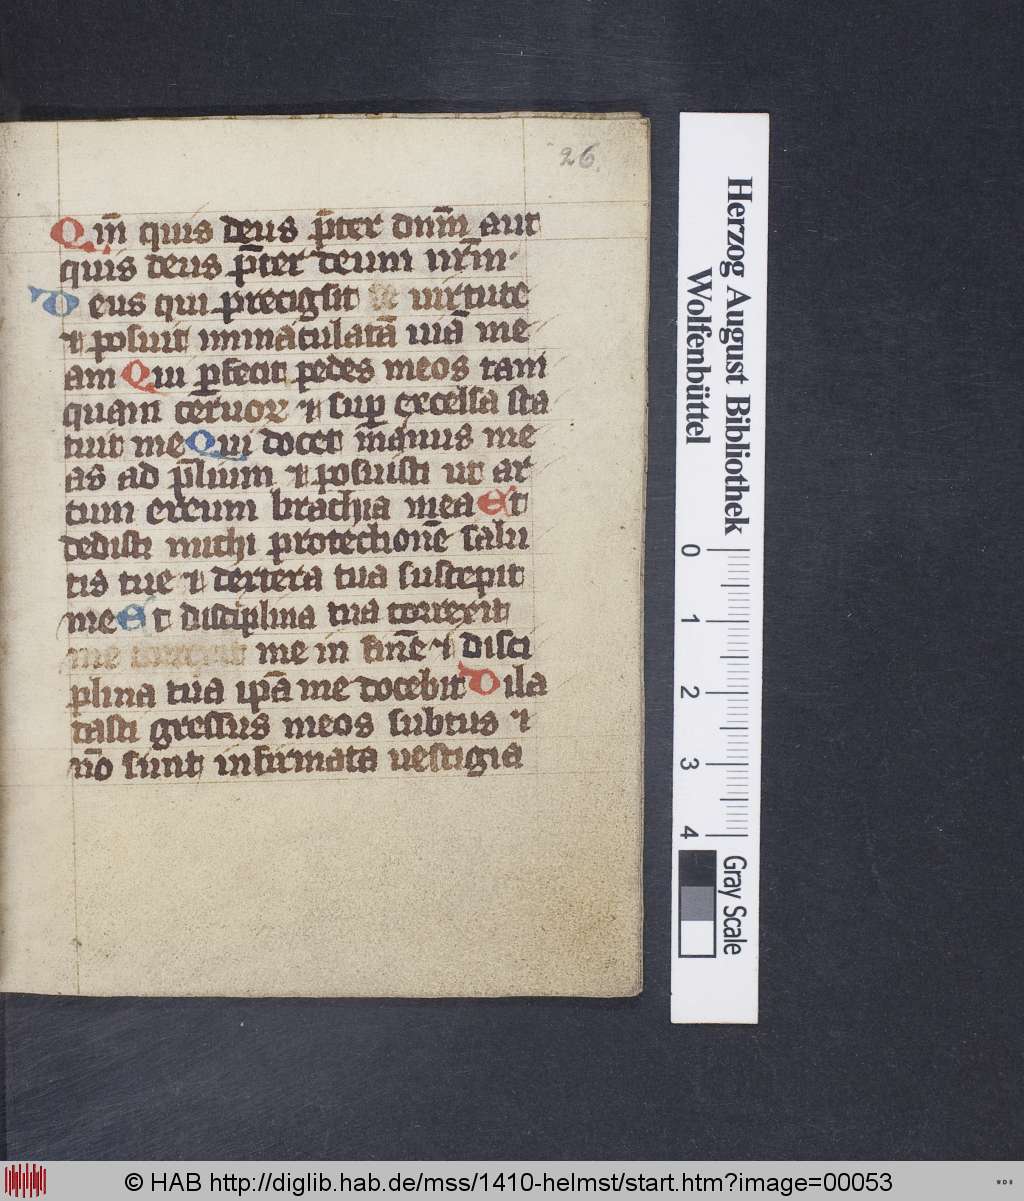 26.
Qm̄ quis deus p̄ter dnm̄ aut
quis deus p̄ter deum nr̄m·
Deus qui precigsit me uirtute
⁊ posuit inmaculatā uiā me
am Qui ꝑfecit pedes meos tam
quam ceruor ⁊ suꝑ excelsa sta
tuit me Qui docet manus me
as ad p̄lium ⁊ posuisti ut ar
cum ereum brachia mea Et
dedisti michi protectionē salu
tis tue ⁊ dextera tua suscepit
me Et disciplina tua correxit
me correxit me in finē ⁊ disci
plina tua ipā me docebit Dila
tasti gressus meos subtus ⁊
nō sunt infirmata uestigia
Herzog August Bibliothek
Wolfenbüttel
0 1 2 3 4
Gray Scale
© HAB http://diglib.hab.de/mss/1410-helmst/start.htm?image=00053